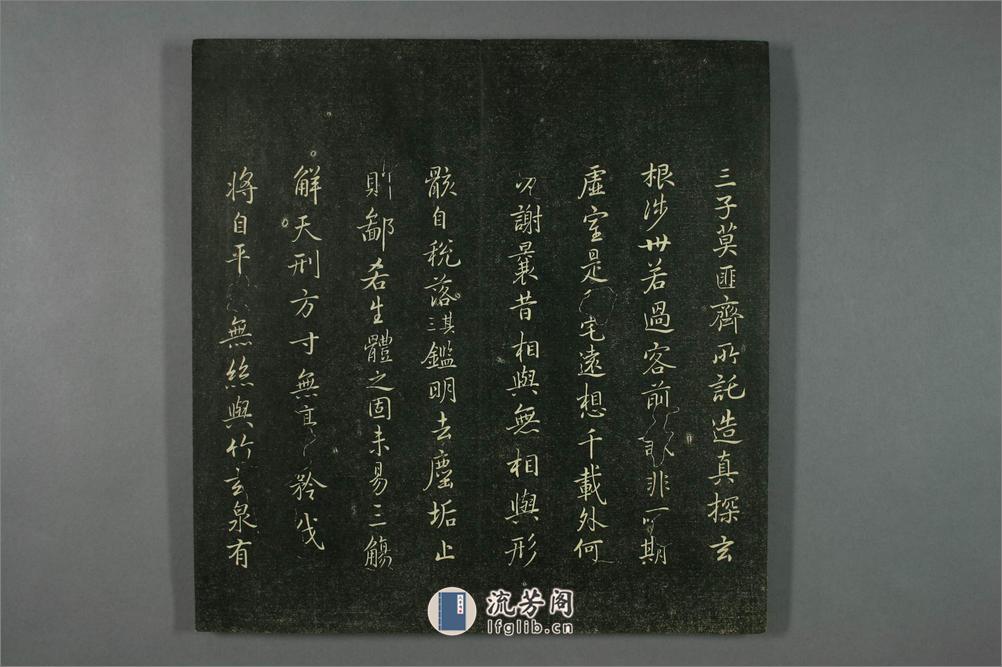 三子莫匪齊所託造真探玄
根涉世若過客前識非所期
虛室是宅遠想千載外何
以謝曩昔相與無相與形
骸自脫落
淇鑑明去塵垢止
則鄙吝生體之固未易三觴
解天刑方寸無矜伐
將自平無絲與竹玄泉有
流芳阁
lfglib.cn